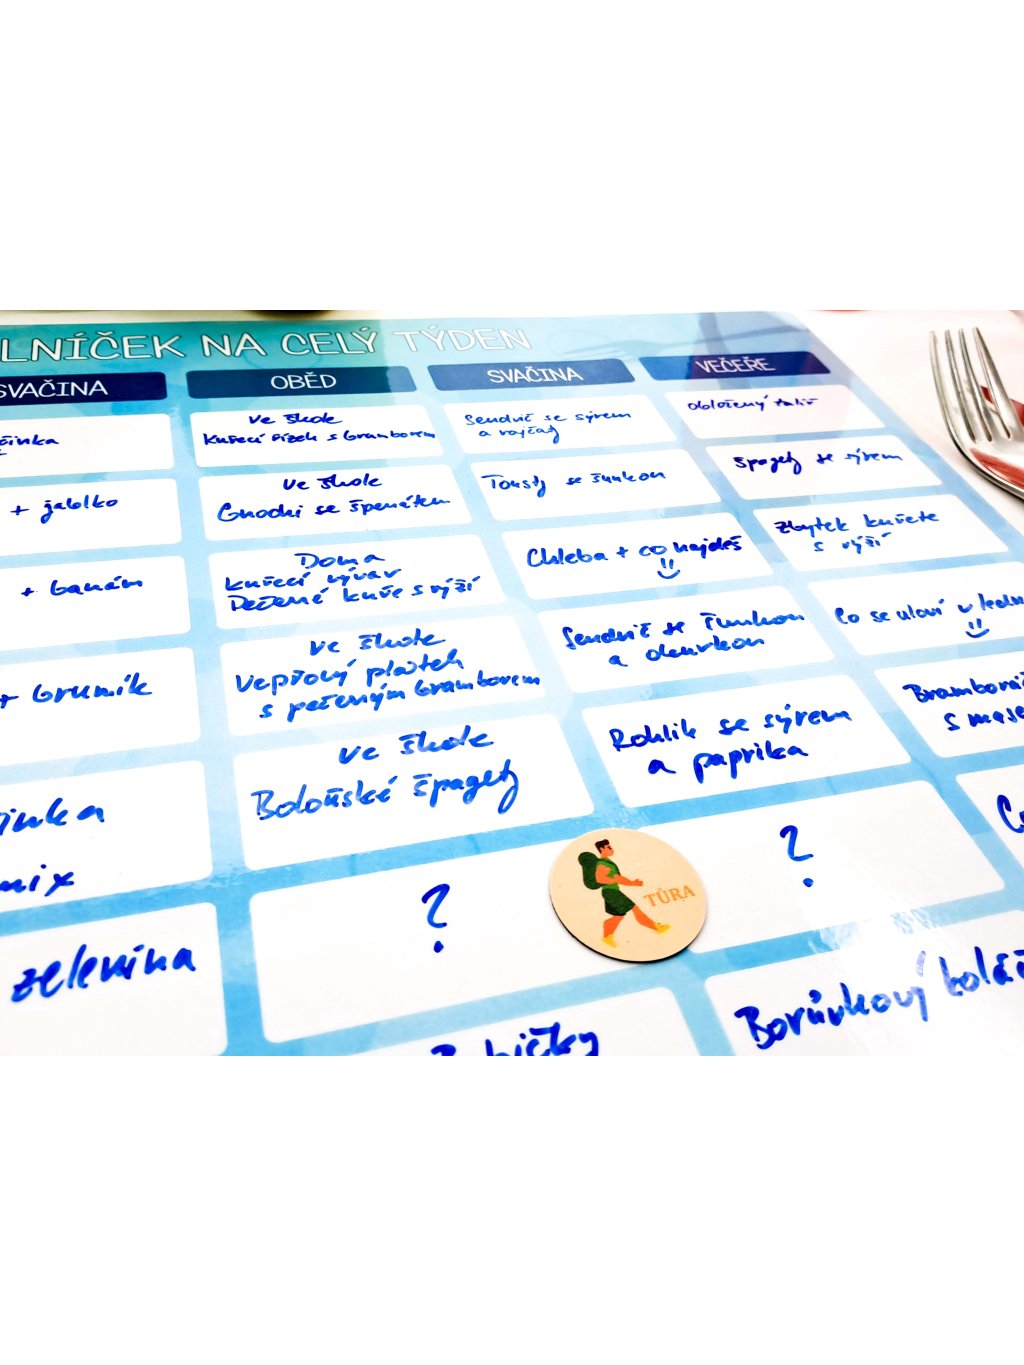 LNÍČEK NA CELÝ TÝDEN
SVAČINA OBĚD SVAČINA VEČEŘE
Ve škole
Kuřecí řízek s bramborem
Sendvič se sýrem
a rajčaty
Obložený talíř
+ jablko
Ve škole
Gnochi se špenátem
Tousty se šunkou
Špagety se sýrem
+ banám
Doma
Kuřecí vývar
Pečené kuře s rýží
Chleba + co najdeš
Zbytek kuřete
s rýží
+ Grumík
Ve škole
Vepřový plátek
s pečeným bramborem
Sendvič se šunkou
a okurkou
Co se uloví v
inka
mix
Ve škole
Boloňské špagety
Rohlík se sýrem
a paprika
s
zelenina
?
TŮRA
?
Borůvkový koláč